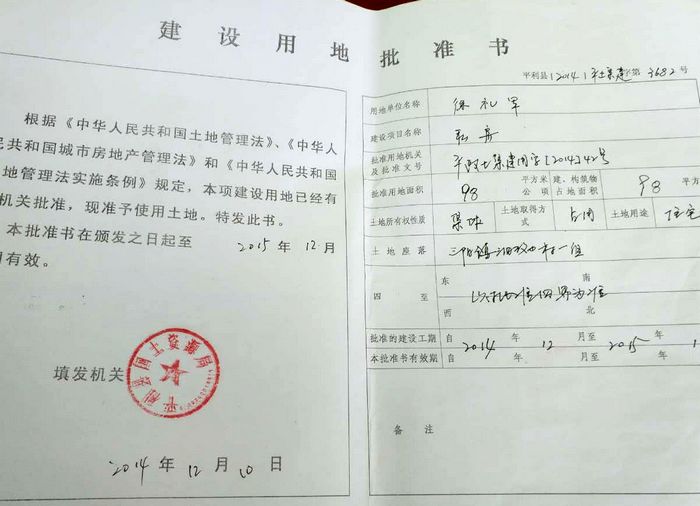 建设用地批准书
根据《中华人民共和国土地管理法》、《中华人
民共和国城市房地产管理法》和《中华人民共和国
地管理法实施条例》规定，本项建设用地已经有
机关批准，现准予使用土地。特发此书。
本批准书在颁发之日起至 2015 年 12 月
有效。
填发机关
平利县国土资源局
2014 年 12 月 10 日
平利县[2014]平土集建字第 3682 号
用地单位名称 徐礼军
建设项目名称 私房
批准用地机关及批准文号 平政土集建用字[2014]42号
批准用地面积 98 平方米 公顷 建、构筑物占地面积 98 平方
土地所有权性质 集体 土地取得方式 占用 土地用途 住宅
土地座落 三阳镇 村一组
四至 东 南 西 北
以 四界为准
批准的建设工期 自 2014 年 12 月至 2015 年 1
本批准书有效期 自 年 月至 年
备注